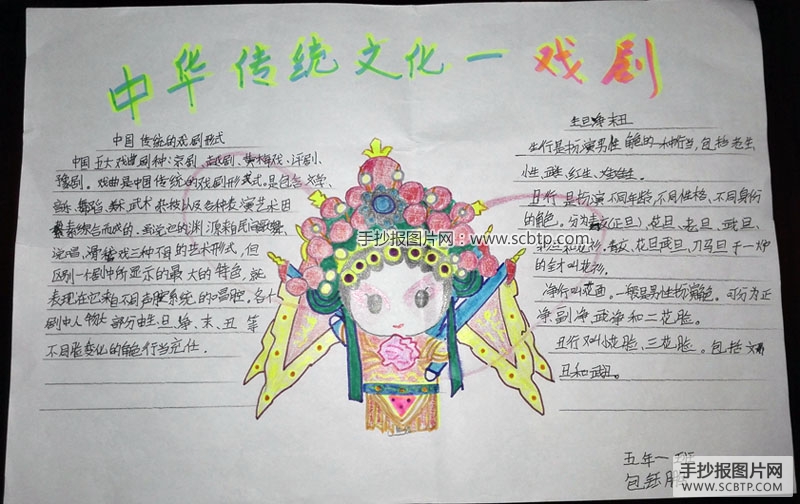 中华传统文化一戏剧
中国传统的戏剧形式
中国五大戏曲剧种:京剧、越剧、黄梅戏、评剧、
豫剧。戏曲是中国传统的戏剧形式。是包含文学、
音乐、舞蹈、美术、武术、杂技以及各种表演艺术因
素综合而成的。
说唱、滑稽戏三种不同的艺术形式,但
区别一个剧中所显示的最大的特色,就
表现在它来自不同声腔系统的唱腔。各个
剧中人物大部分由生、旦、净、末、丑等
不同脸变化的角色行当充任。
生旦净末丑
生行是扮演男性角色的一种行当,包括老生、
旦行是扮演不同年龄、不同性格、不同身份
的角色。分为青衣(正旦)、花旦、老旦、武旦、
花旦武旦、刀马旦于一炉
的全才叫花衫。
净行叫花面。一般是男性扮演角色。可分为正
净、副净、武净和二花脸。
丑行叫小花脸、三花脸。包括文
丑和武丑。
五年一班
手抄报图片网:www.scbtp.com
手抄报图片网
WWW.SCBTP.COM